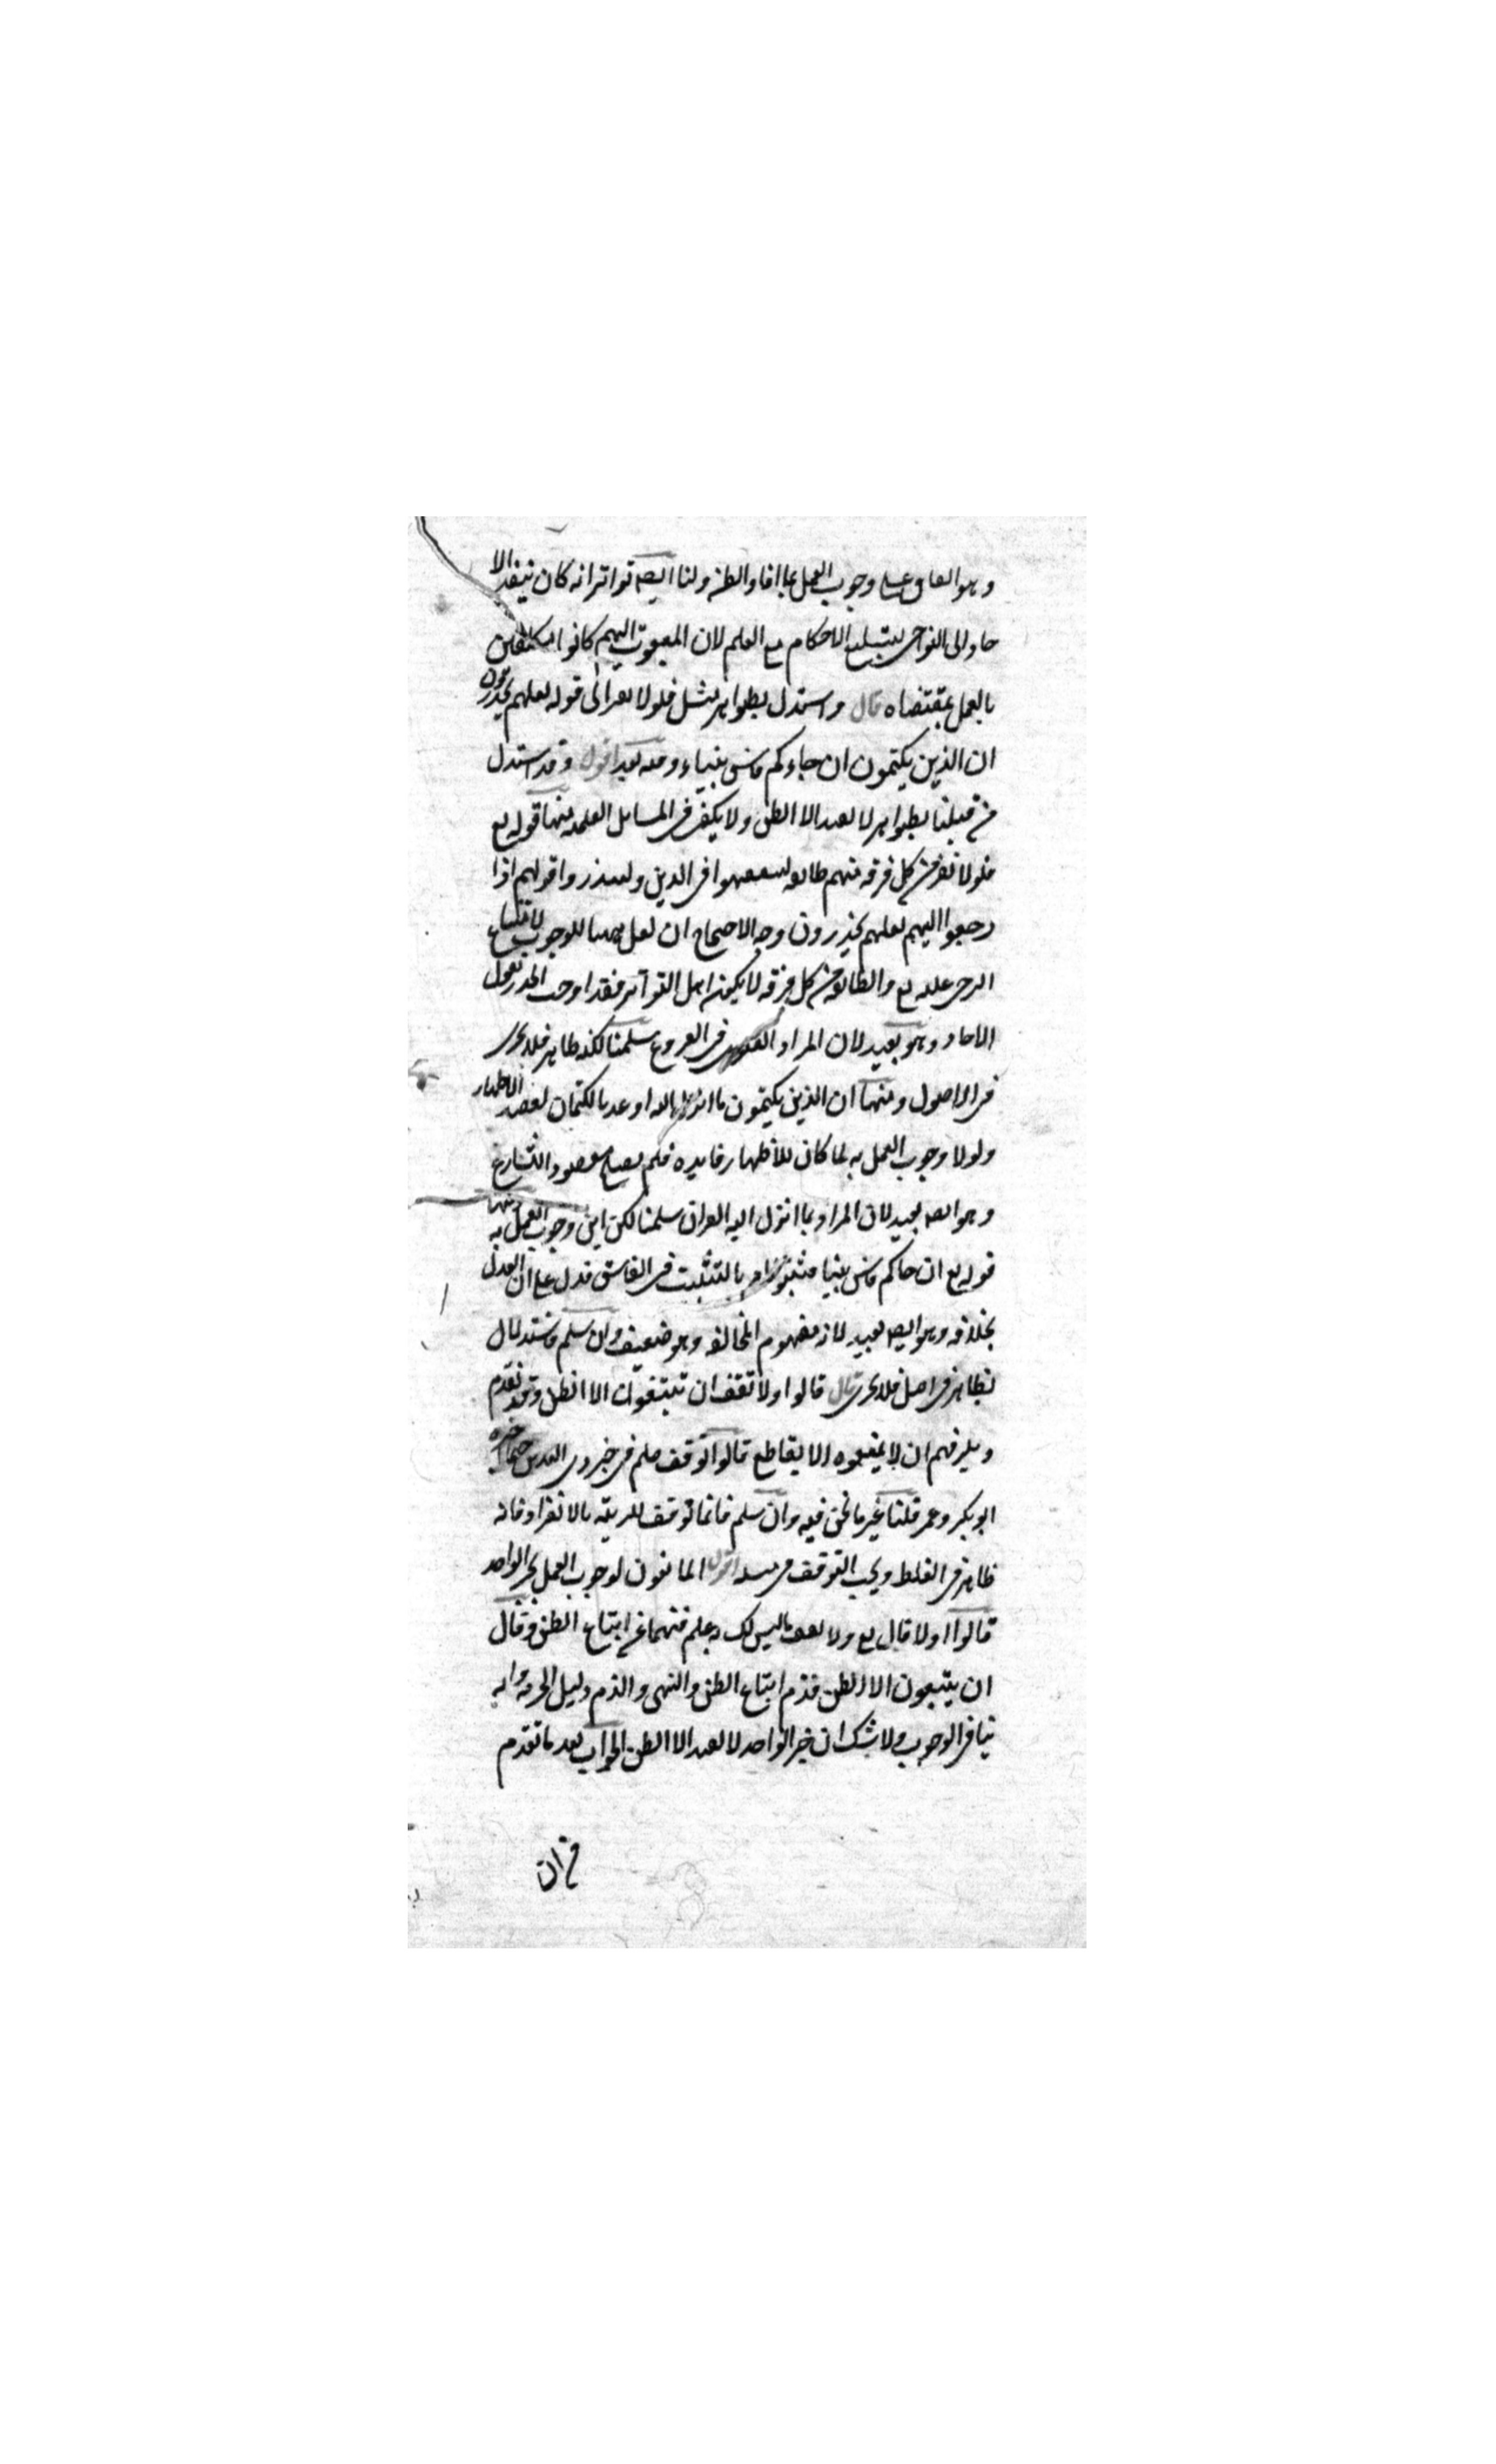 وهو اتفاق على وجوب العمل بما افاد الظن ولنا ايضه تواتر انه كان ينفذ الا
حاد الى النواحى لتبليغ الاحكام مع العلم لان المبعوث اليهم كانوا مكلفين
بالعمل بمقتضاه قال واستدل بظواهر مثل فلولا نفر الى قوله لعلهم يحذرون
ان الذين يكتمون ان جاءكم فاسق بنباء وفيه بعد اقول وقد استدل
من قبلنا بظواهر لا تفيد الا الظن ولا يكفى فى المسايل العلميه منها قوله تع
فلولا نفر من كل فرقه منهم طايفه ليتفقهوا فى الدين ولينذروا قومهم اذا
رجعوا اليهم لعلهم يحذرون وجه الاحتجاج ان لعل ههنا للوجوب لامتناع
الترجى عليه تع والطايفه من كل فرقه لا يكون اهل التواتر فقد اوجب الحذر بقول
الاحاد وهو بعيد لان المراد الفتوى فى الفروع سلمنا لكنه ظاهر فلا يجرى
فى الاصول ومنها ان الذين يكتمون ما انزل الله اوعد بالكتمان لقصد الاظهار
ولولا وجوب العمل به لما كان للاظهار فايده فلم مقصود الشارع
وهو ايضه بعيد لان المراد بما انزل اليه القران سلمنا لكن اين وجوب العمل به ومنها
قوله تع ان جاكم فاسق بنبا فتبينوا امر بالتثبت فى الفاسق فدل على ان العدل
بخلافه وهو ايضه بعيد لانه مفهوم المخالفه وهو ضعيف وان سلم فاستدلال
بظاهر فى اصل فلا يجرى قال قالوا ولا تقف ان يتبعون الا الظن وقد تقدم
ويلزمهم ان لا يمنعوه الا بقاطع قالوا توقف صلم فى خبر ذى اليدين حتى اخبره
ابو بكر وعمر قلنا غير ما نحن فيه وان سلم فانما توقف للريبه بالانفراد فانه
ظاهر فى الغلط ويجب التوقف فى مثله اقول المانعون لوجوب العمل بخبر الواحد
قالوا اولا قال تع ولا تقف ما ليس لك به علم فنهى عن اتباع الظن وقال
ان يتبعون الا الظن فذم اتباع الظن والنهى والذم دليل الحرمه وانه
ينافى الوجوب ولا شك ان خبر الواحد لا يفيد الا الظن الجواب بعد ما تقدم
من ان